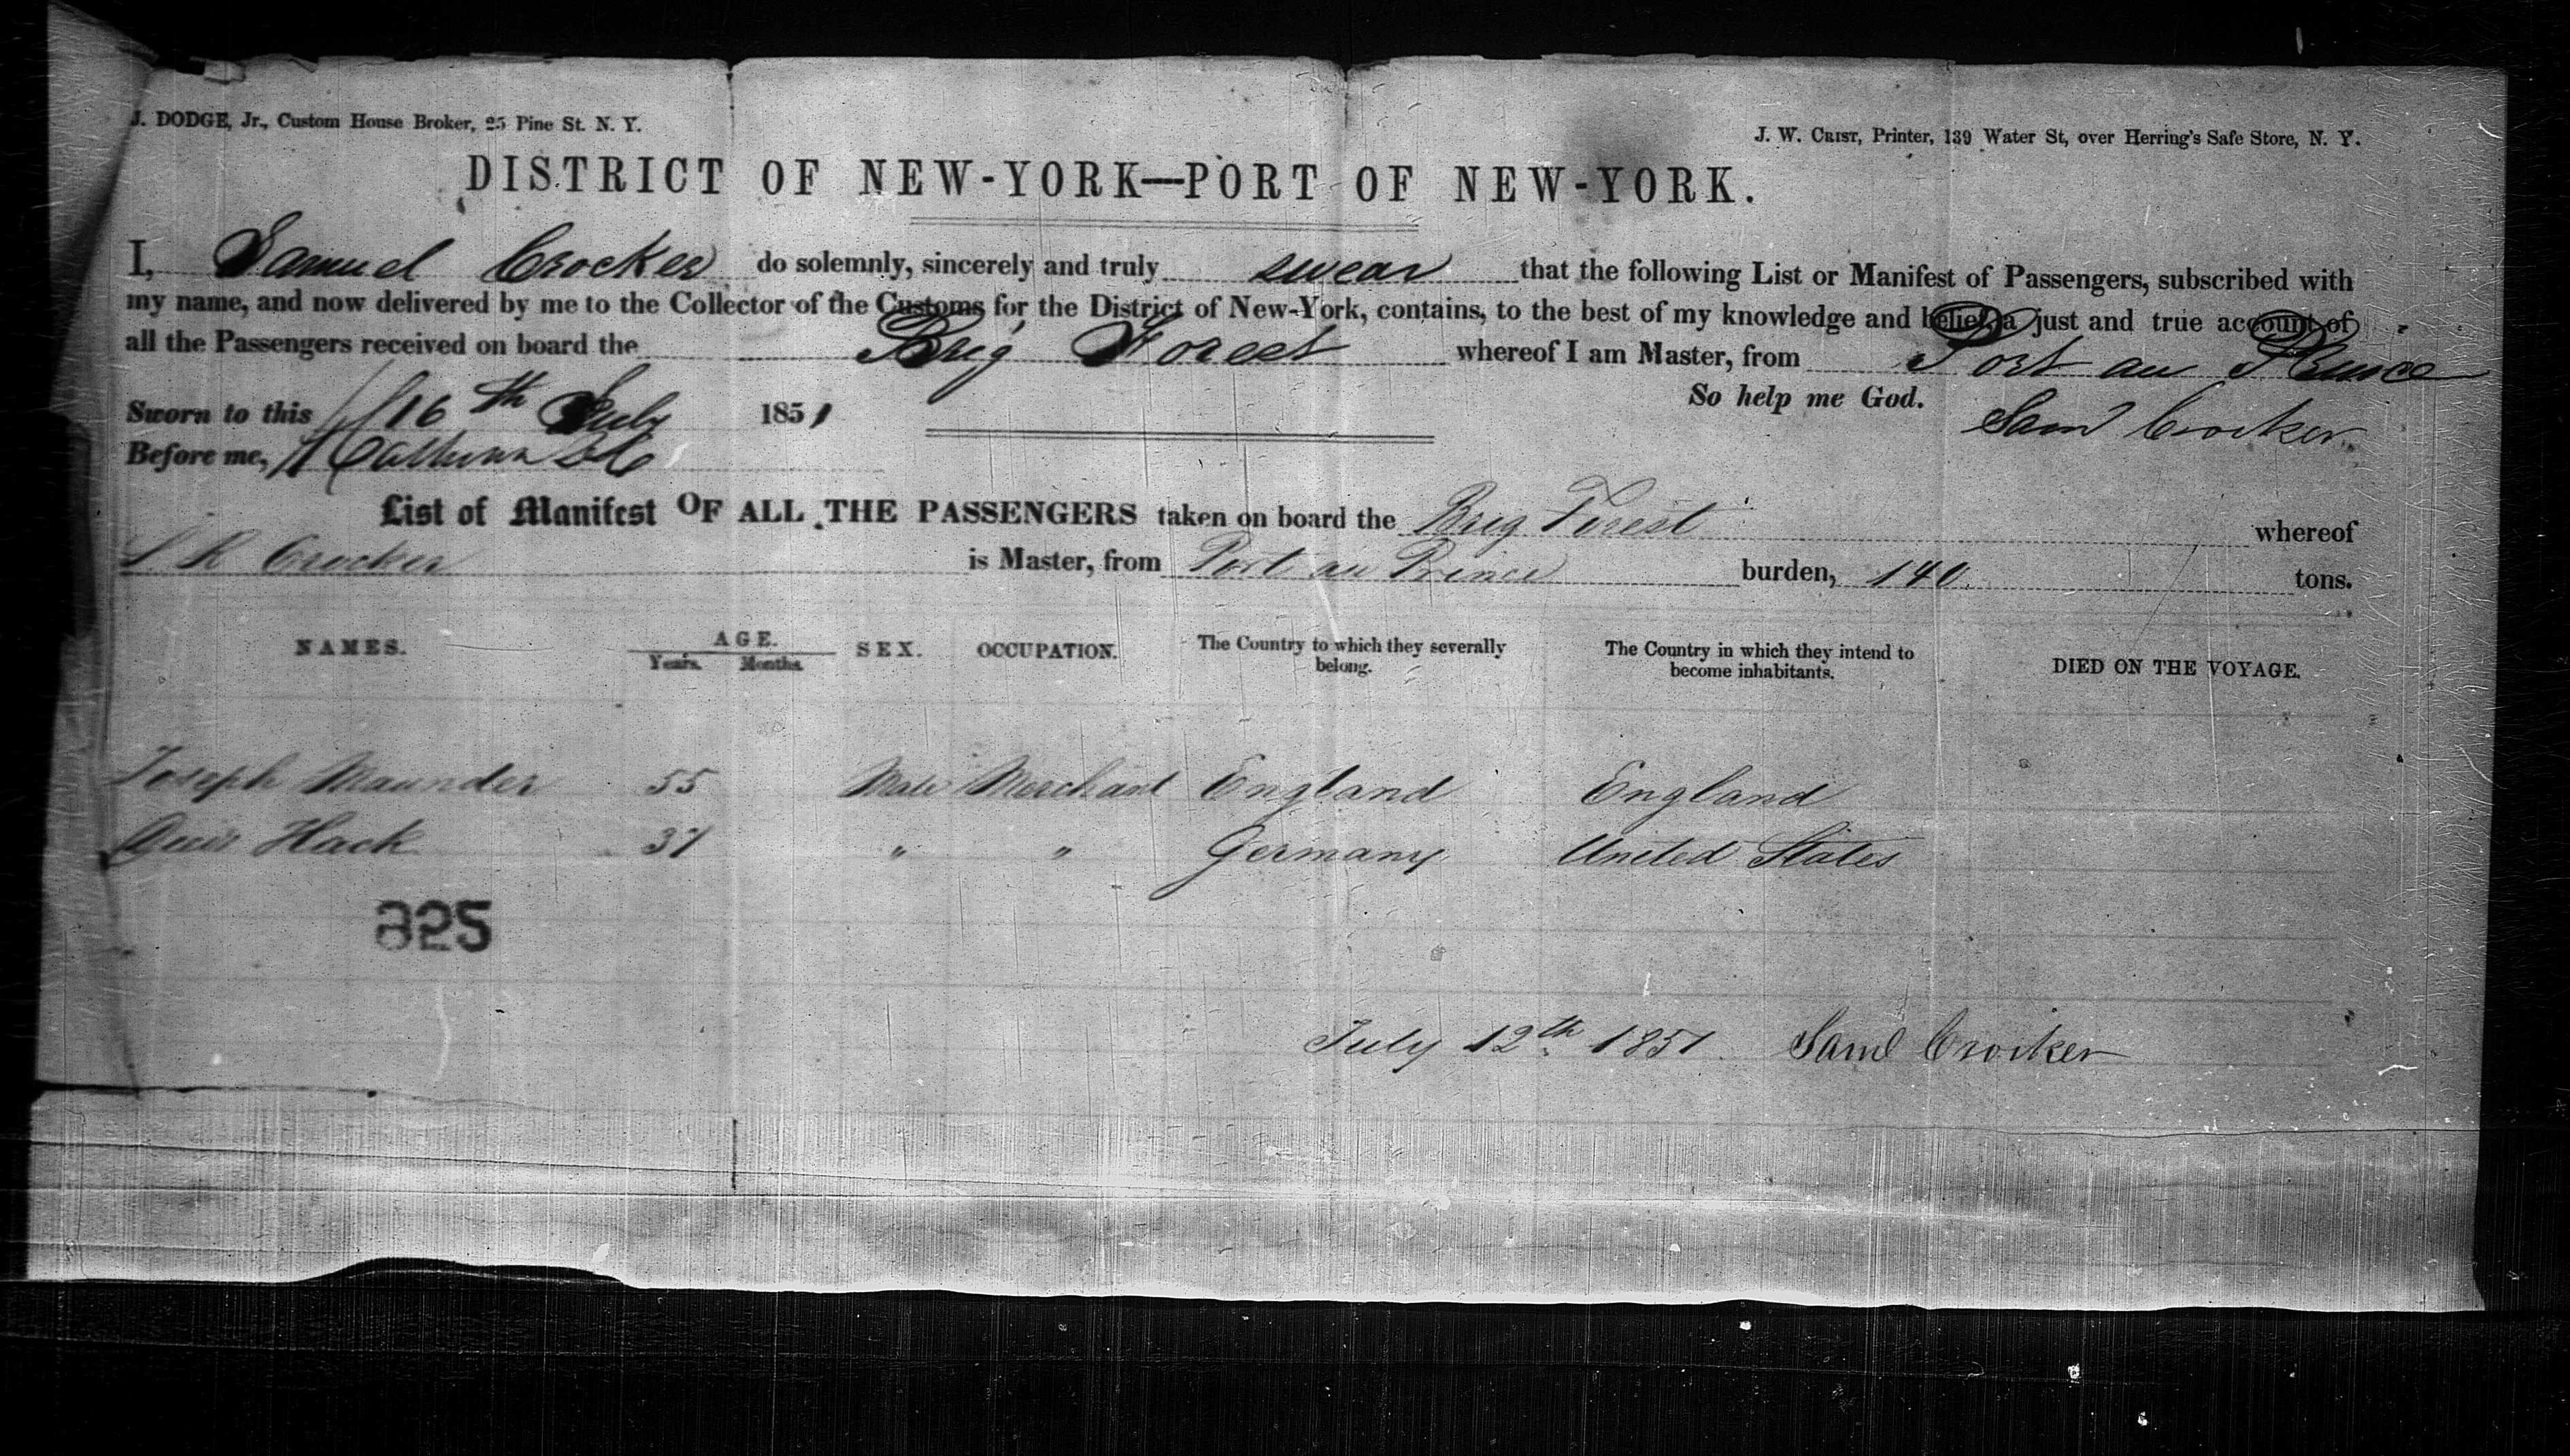 J. DODGE, Jr., Custom House Broker, 25 Pine St. N. Y.
J. W. CRIST, Printer, 139 Water St, over Herring's Safe Store, N. Y.
DISTRICT OF NEW-YORK—PORT OF NEW-YORK.
I, Samuel Crocker do solemnly, sincerely and truly swear that the following List or Manifest of Passengers, subscribed with
my name, and now delivered by me to the Collector of the Customs for the District of New-York, contains, to the best of my knowledge and belief, a just and true account of
all the Passengers received on board the Brig Forest whereof I am Master, from Port au Prince
So help me God.
Sworn to this 16th July 1851
Saml Crocker
Before me,
List of Manifest OF ALL THE PASSENGERS taken on board the Brig Forest whereof
S R Crocker is Master, from Port au Prince burden, 140 tons.
NAMES. AGE. Years. Months. SEX. OCCUPATION. The Country to which they severally belong. The Country in which they intend to become inhabitants. DIED ON THE VOYAGE.
Joseph Maunder 55 Male Merchant England England
Hack 37 " " Germany United States
825
July 12th 1851 Saml Crocker